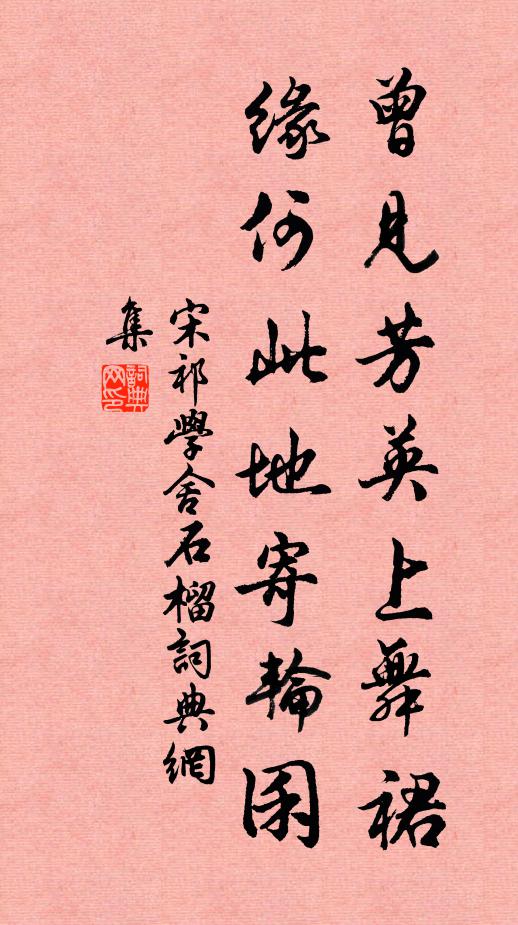 曾見芳英上舞裙
緣何此地寄輪囷
宋祁學舍石榴詞典網
集
詞典網印